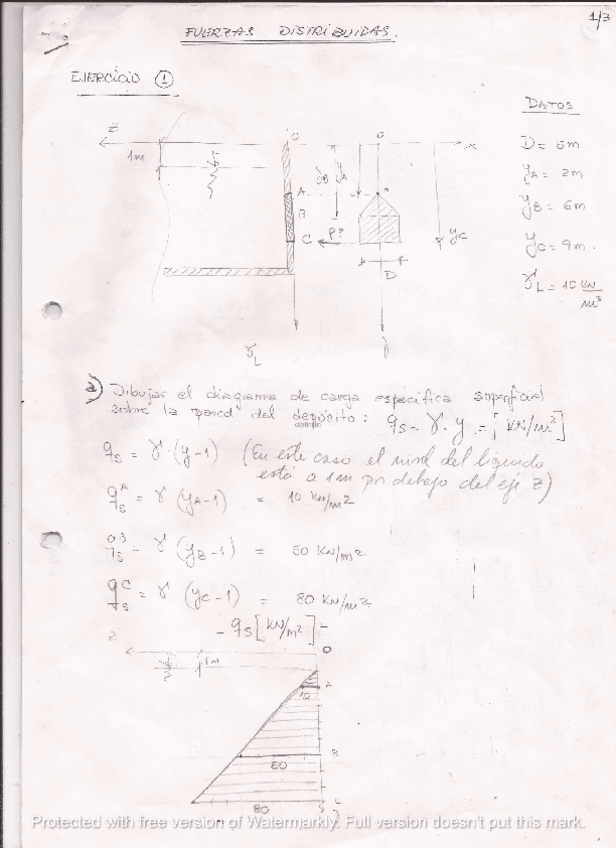 1/3
FUERZAS DISTRIBUIDAS.
EJERCICIO 1
DATOS
D = 5m
yA = 2m
yB = 6m
yC = 9m.
γL = 10 KN/m³
z
1m
O
O
x
yB
yA
A
B
C
P?
yC
D
γL
a) Dibujar el diagrama de carga especifica superficial
sobre la pared del depósito: qs = γ · y = [KN/m²]
qs = γ · (y-1) (En este caso el nivel del liquido
está a 1m por debajo del eje z)
qsA = γ (yA-1) = 10 KN/m²
qsB = γ (yB-1) = 50 KN/m²
qsC = γ (yC-1) = 80 KN/m²
- qs [KN/m²]
z
1m
O
10
80
Protected with free version of Watermarkly. Full version doesn't put this mark.